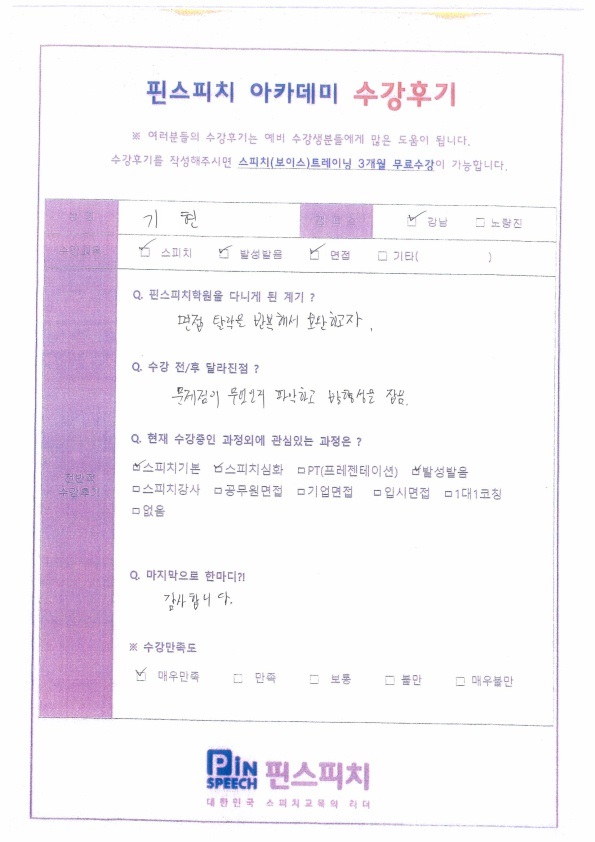 핀스피치 아카데미 수강후기
※ 여러분들의 수강후기는 예비 수강생분들에게 많은 도움이 됩니다.
수강후기를 작성해주시면 스피치(보이스)트레이닝 3개월 무료수강이 가능합니다.
성 명 기 현 ☑ 강남 ☐ 노량진
☑ 스피치 ☑ 발성발음 ☑ 면접 ☐ 기타( )
Q. 핀스피치학원을 다니게 된 계기 ?
면접 탈락을 반복해서
Q. 수강 전/후 달라진점 ?
문제점이 무엇인지 파악하고 방향성을 잡음.
Q. 현재 수강중인 과정외에 관심있는 과정은 ?
☑스피치기본 ☑스피치심화 ☐PT(프레젠테이션) ☑발성발음
☐스피치강사 ☐공무원면접 ☐기업면접 ☐입시면접 ☐1대1코칭
☐없음
수강후기
Q. 마지막으로 한마디?!
감사합니다.
※ 수강만족도
☑ 매우만족 ☐ 만족 ☐ 보통 ☐ 불만 ☐ 매우불만
PIN SPEECH 핀스피치
대한민국 스피치교육의 리더